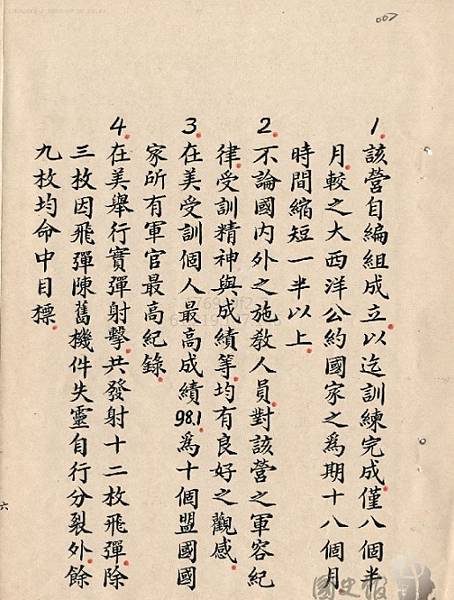 007
1.該營自編組成立以迄訓練完成僅八個半
月較之大西洋公約國家之爲期十八個月
時間縮短一半以上
2.不論國內外之施教人員對該營之軍容紀
律受訓精神與成績等均有良好之觀感
3.在美受訓個人最高成績98.1爲十個盟國國
家所有軍官最高紀錄
4.在美舉行實彈射擊共發射十二枚飛彈除
三枚因飛彈陳舊機件失靈自行分裂外餘
九枚均命中目標
六
國史館